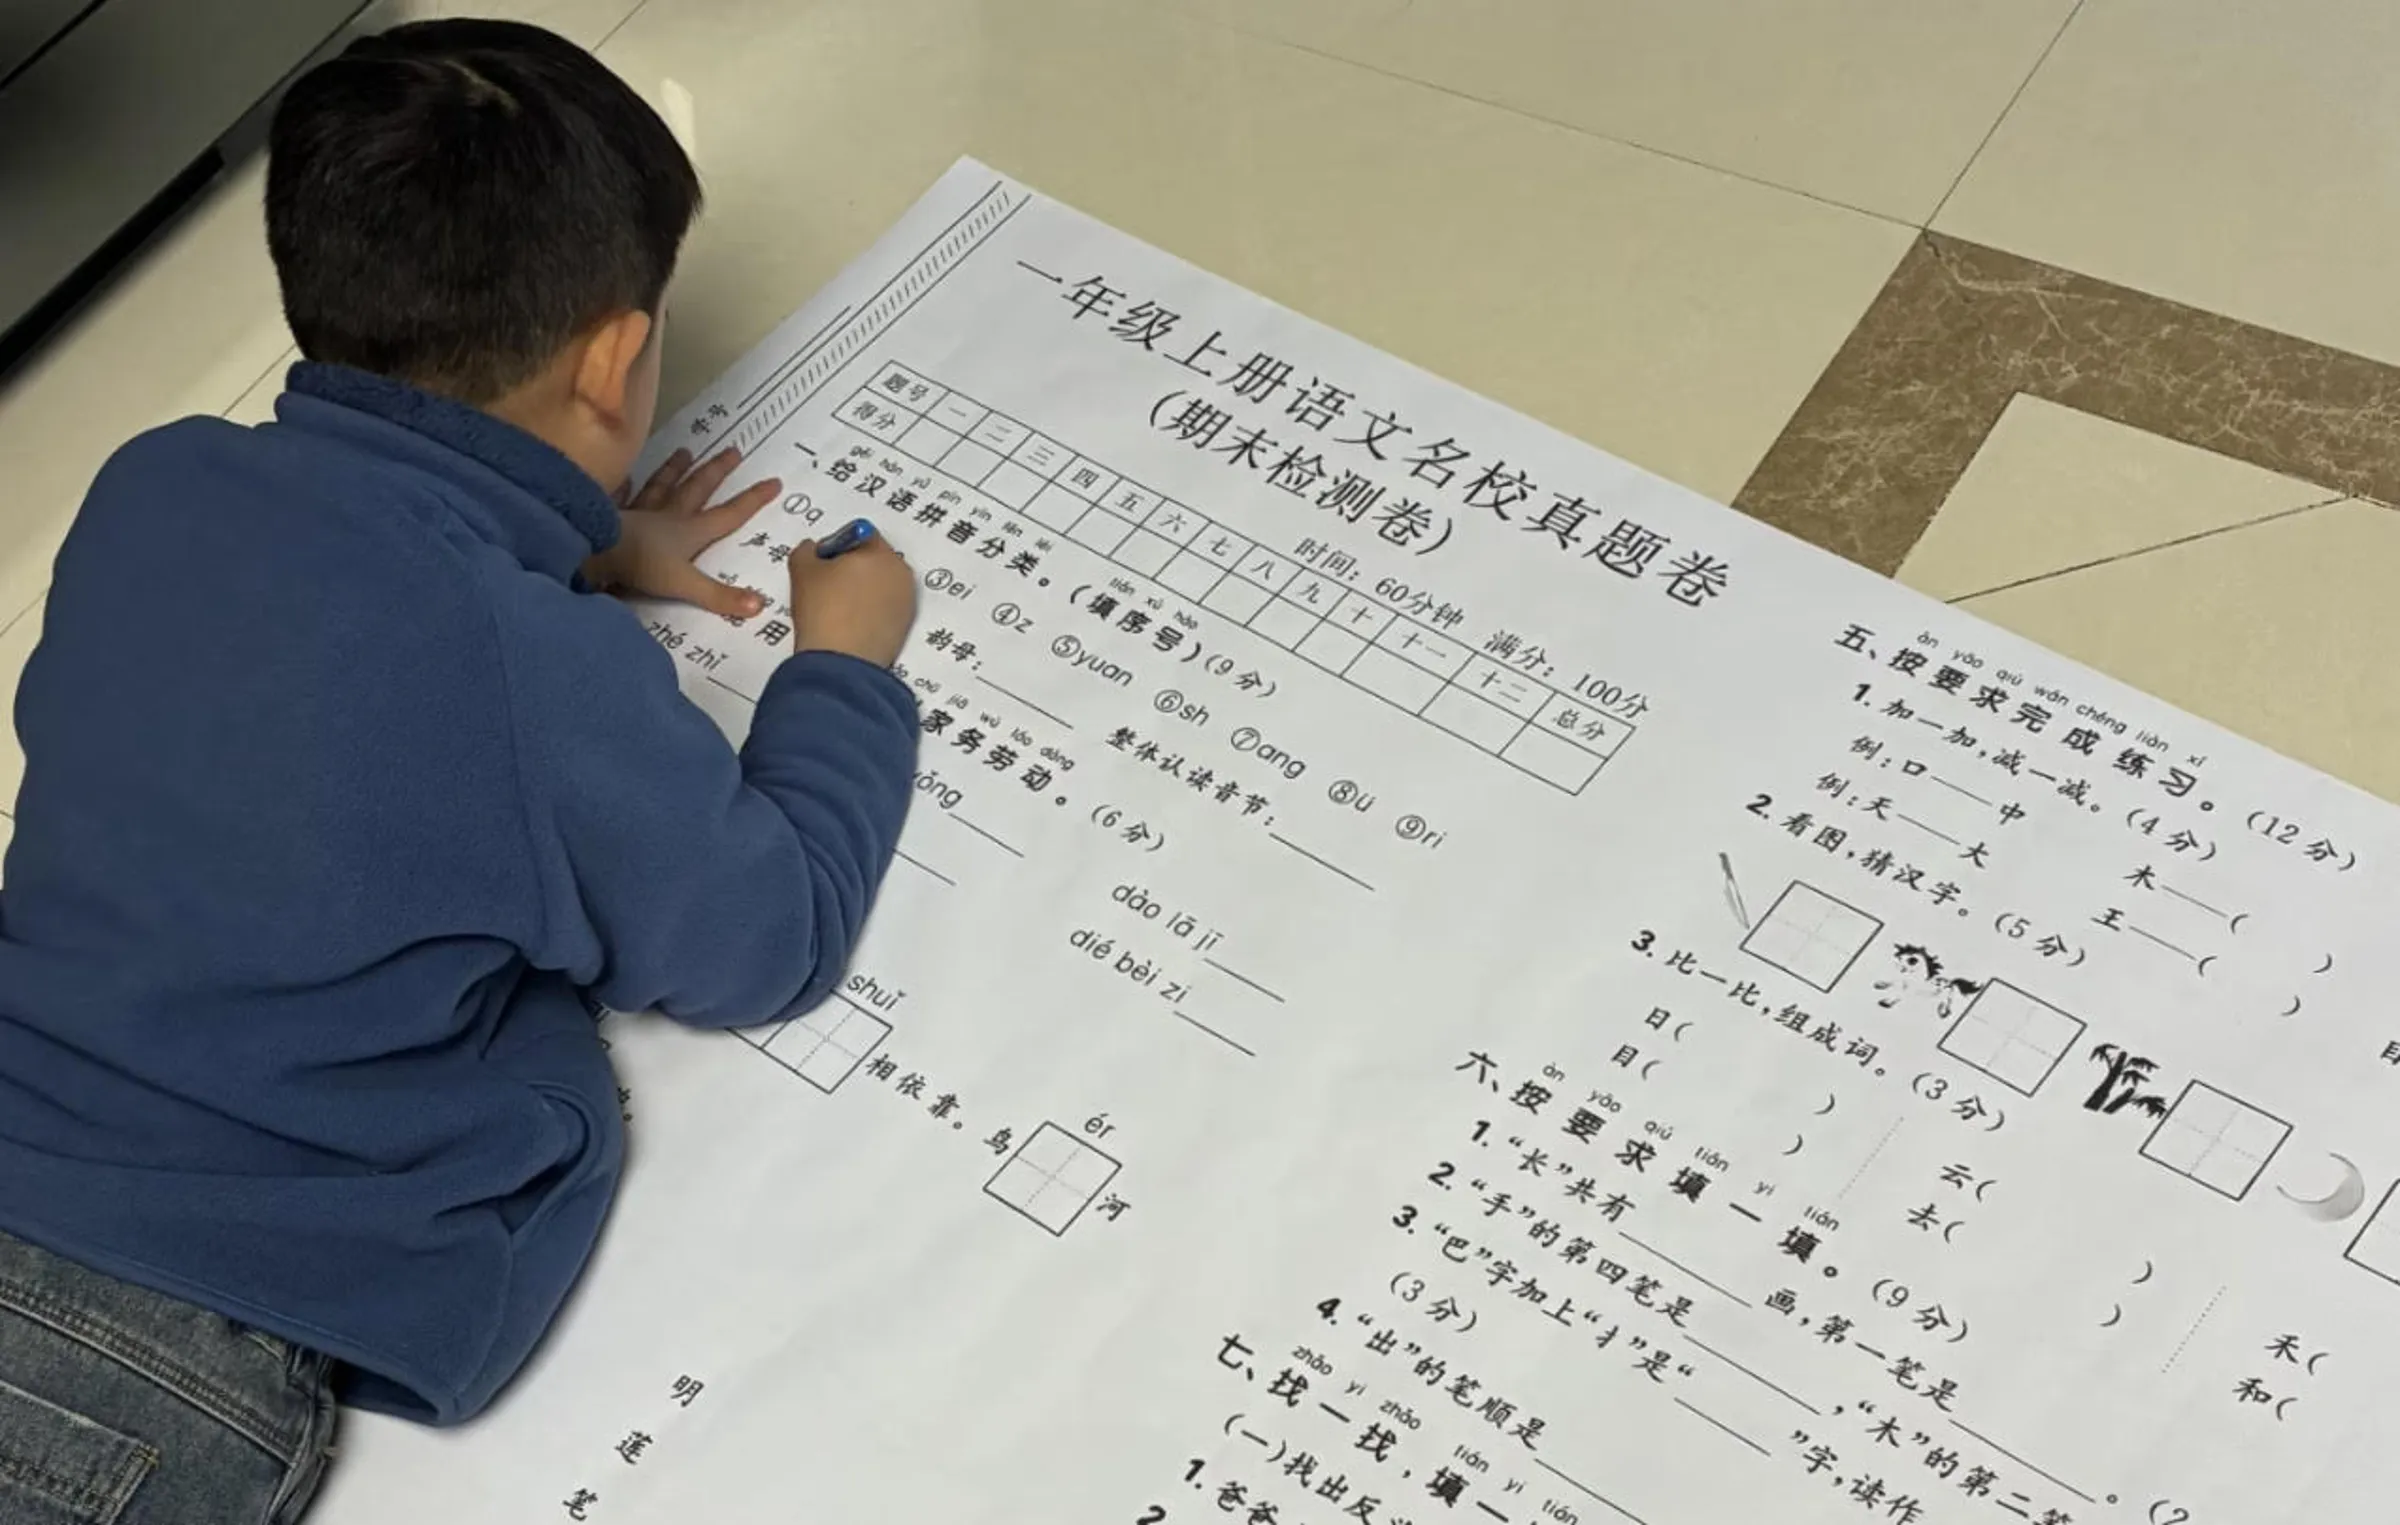 一年级上册语文名校真题卷
(期末检测卷)
时间：60分钟 满分：100分
题号 一 二 三 四 五 六 七 八 九 十 十一 十二 总分
得分
学号
gěi hàn yǔ pīn yīn fēn lèi tián xù hào
一、给汉语拼音分类。(填序号)(9分)
①q ③ei ④z ⑤yuan ⑥sh ⑦ang ⑧ü ⑨ri
声母 韵母： 整体认读音节：
用 家务劳动。(6分)
chú jiā wù láo dòng
zhé zhǐ dào lā jī
dié bèi zi
shuǐ
相依靠。鸟
ér
河
明
莲
笔
àn yāo qiú wán chéng liàn xí
五、按要求完成练习。(12分)
1. 加一加，减一减。(4分)
例：口——中 木——( )
例：天——大 王——( )
2. 看图，猜汉字。(5分)
3. 比一比，组成词。(3分)
日( ) 云( ) 禾(
目( ) 去( ) 和(
àn yāo qiú tián yi tián
六、按要求填一填。(9分)
1. “长”共有 画，第一笔是 。(2
2. “手”的第四笔是 ，“木”的第二笔
3. “巴”字加上“扌”是“ ”字，读作
(3分)
4. “出”的笔顺是
zhǎo yi zhǎo tián yi tián
七、找一找，填一
(一)找出反
1. 爸爸
2